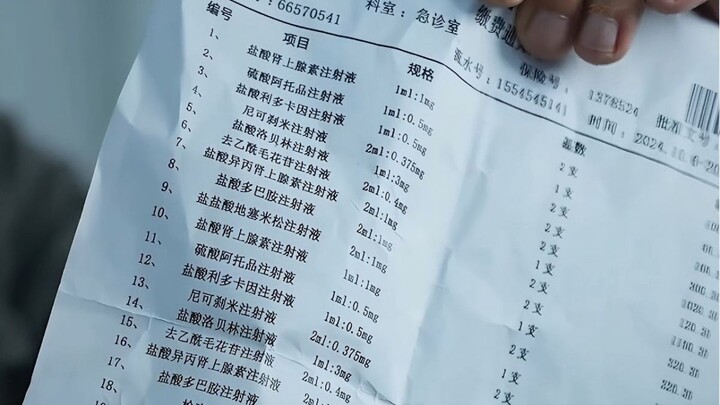 ：66570541 科室：急诊室 缴费通
流水号：1554545141 保险号：1378524 批准文号
时间：2024.10.
编号 项目 规格 基数
1、 盐酸肾上腺素注射液 1ml:1mg 2支
2、 硫酸阿托品注射液 1ml:0.5mg 1支
3、 盐酸利多卡因注射液 1ml:0.5mg 2支
4、 尼可刹米注射液 2ml:0.375mg 2支
5、 盐酸洛贝林注射液 1ml:3mg 2支
6、 去乙酰毛花苷注射液 2ml:0.4mg 1支
7、 盐酸异丙肾上腺素注射液 2ml:1mg 2支
8、 盐酸多巴胺注射液 2ml:1mg 2支
9、 盐盐酸地塞米松注射液 2ml:1mg 1支
10、 盐酸肾上腺素注射液 1ml:1mg 2支
11、 硫酸阿托品注射液 1ml:0.5mg 2支
12、 盐酸利多卡因注射液 1ml:0.5mg 1支
13、 尼可刹米注射液 2ml:0.375mg
14、 盐酸洛贝林注射液 1ml:3mg
15、 去乙酰毛花苷注射液 2ml:0.4mg
16、 盐酸异丙肾上腺素注射液 2ml:1mg
17、 盐酸多巴胺注射液
18、